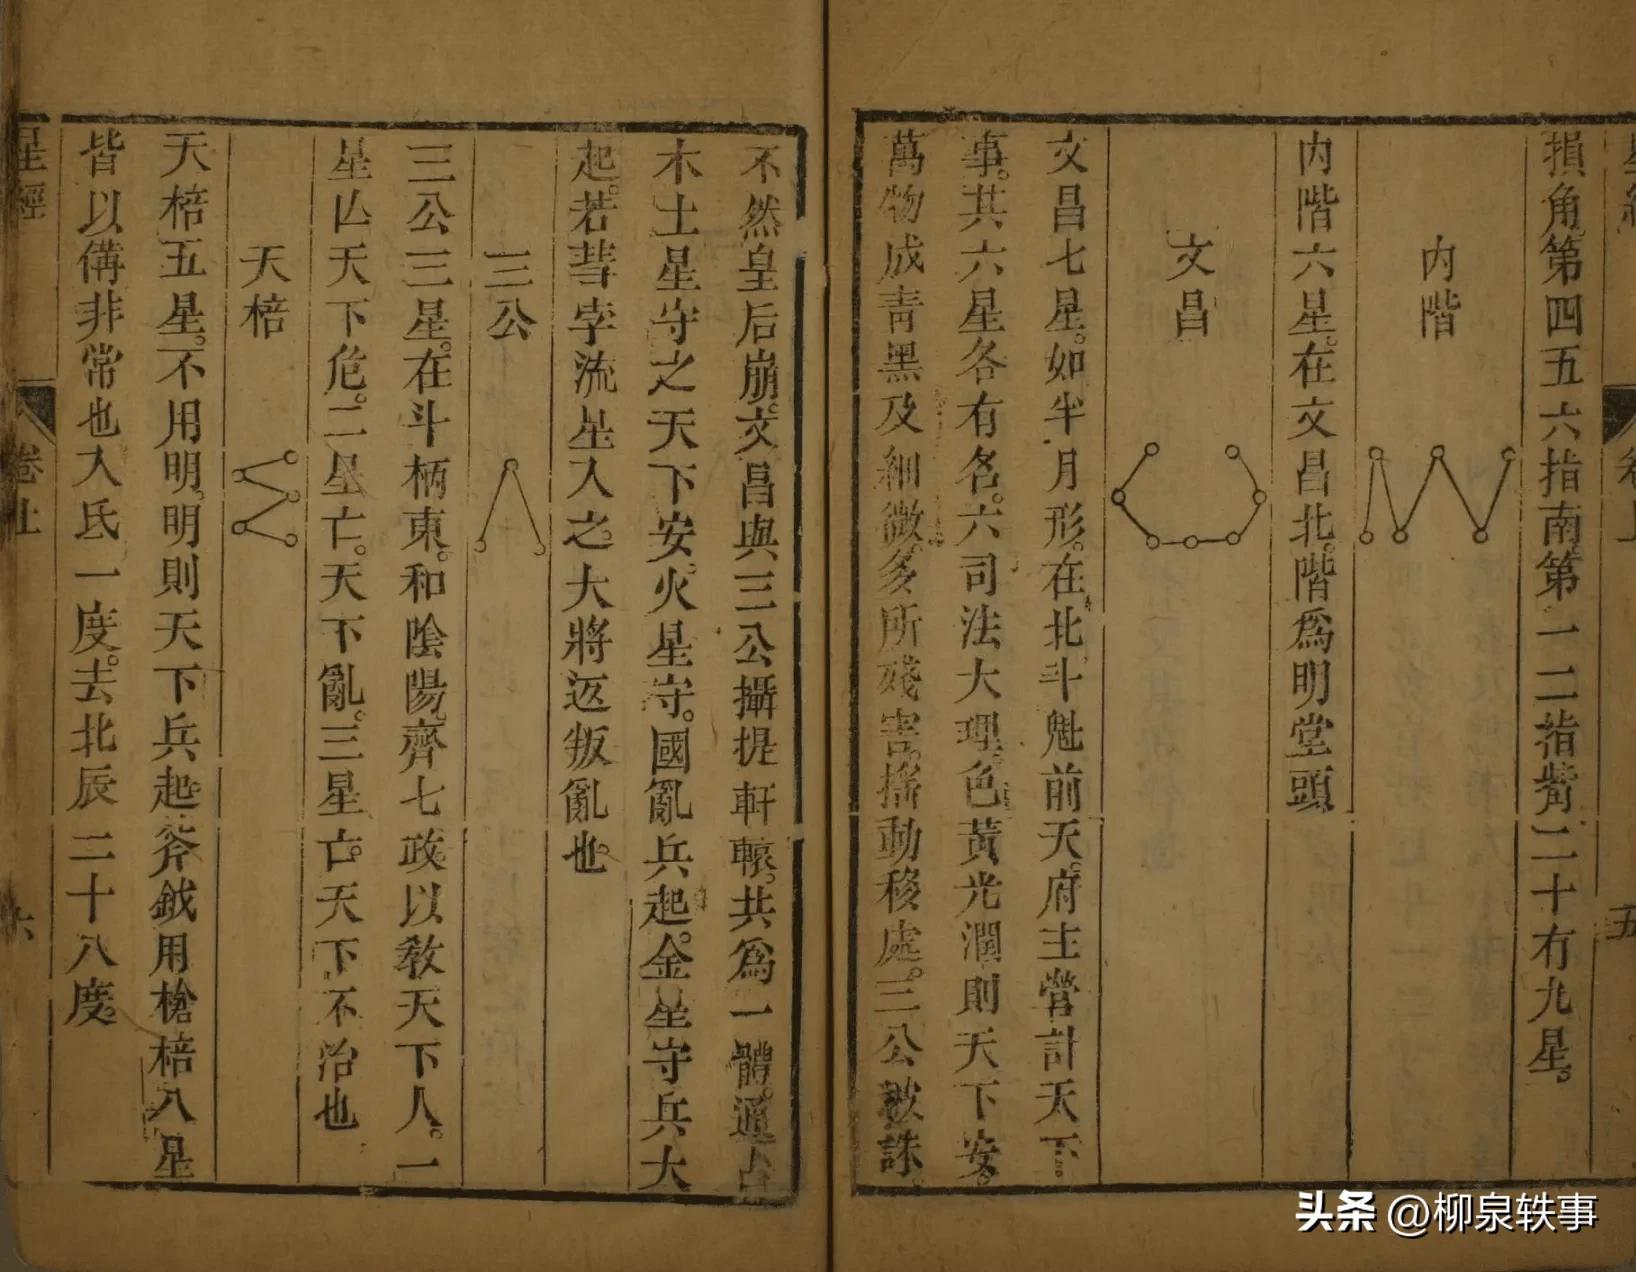 損角第四五六指南第一二指觜二十有九星。
内階
内階六星。在文昌北。階爲明堂頭
文昌
文昌七星。如半月形。在北斗魁前天。府主營計天下
事。其六星各有名。六司法大理。色黃光潤則天下安。
萬物成青黑及細微。多所殘害。搖動移處。三公被誅。
不然皇后崩。文昌與三公攝提軒轅。共爲一體。通占
木土星守之天下安。火星守。國亂兵起。金星守兵大
起。若彗孛流星入之。大將返叛亂也。
三公
三公三星。在斗柄東。和陰陽。齊七政。以敎天下人。一
星亾天下危。二星亡。天下亂。三星亡。天下不治也
天棓
天棓五星。不用明。明則天下兵起。斧鉞用槍棓八星
皆以備非常也入氐一度。去北辰二十八度。
星經
卷上
六
五
头条 @柳泉轶事